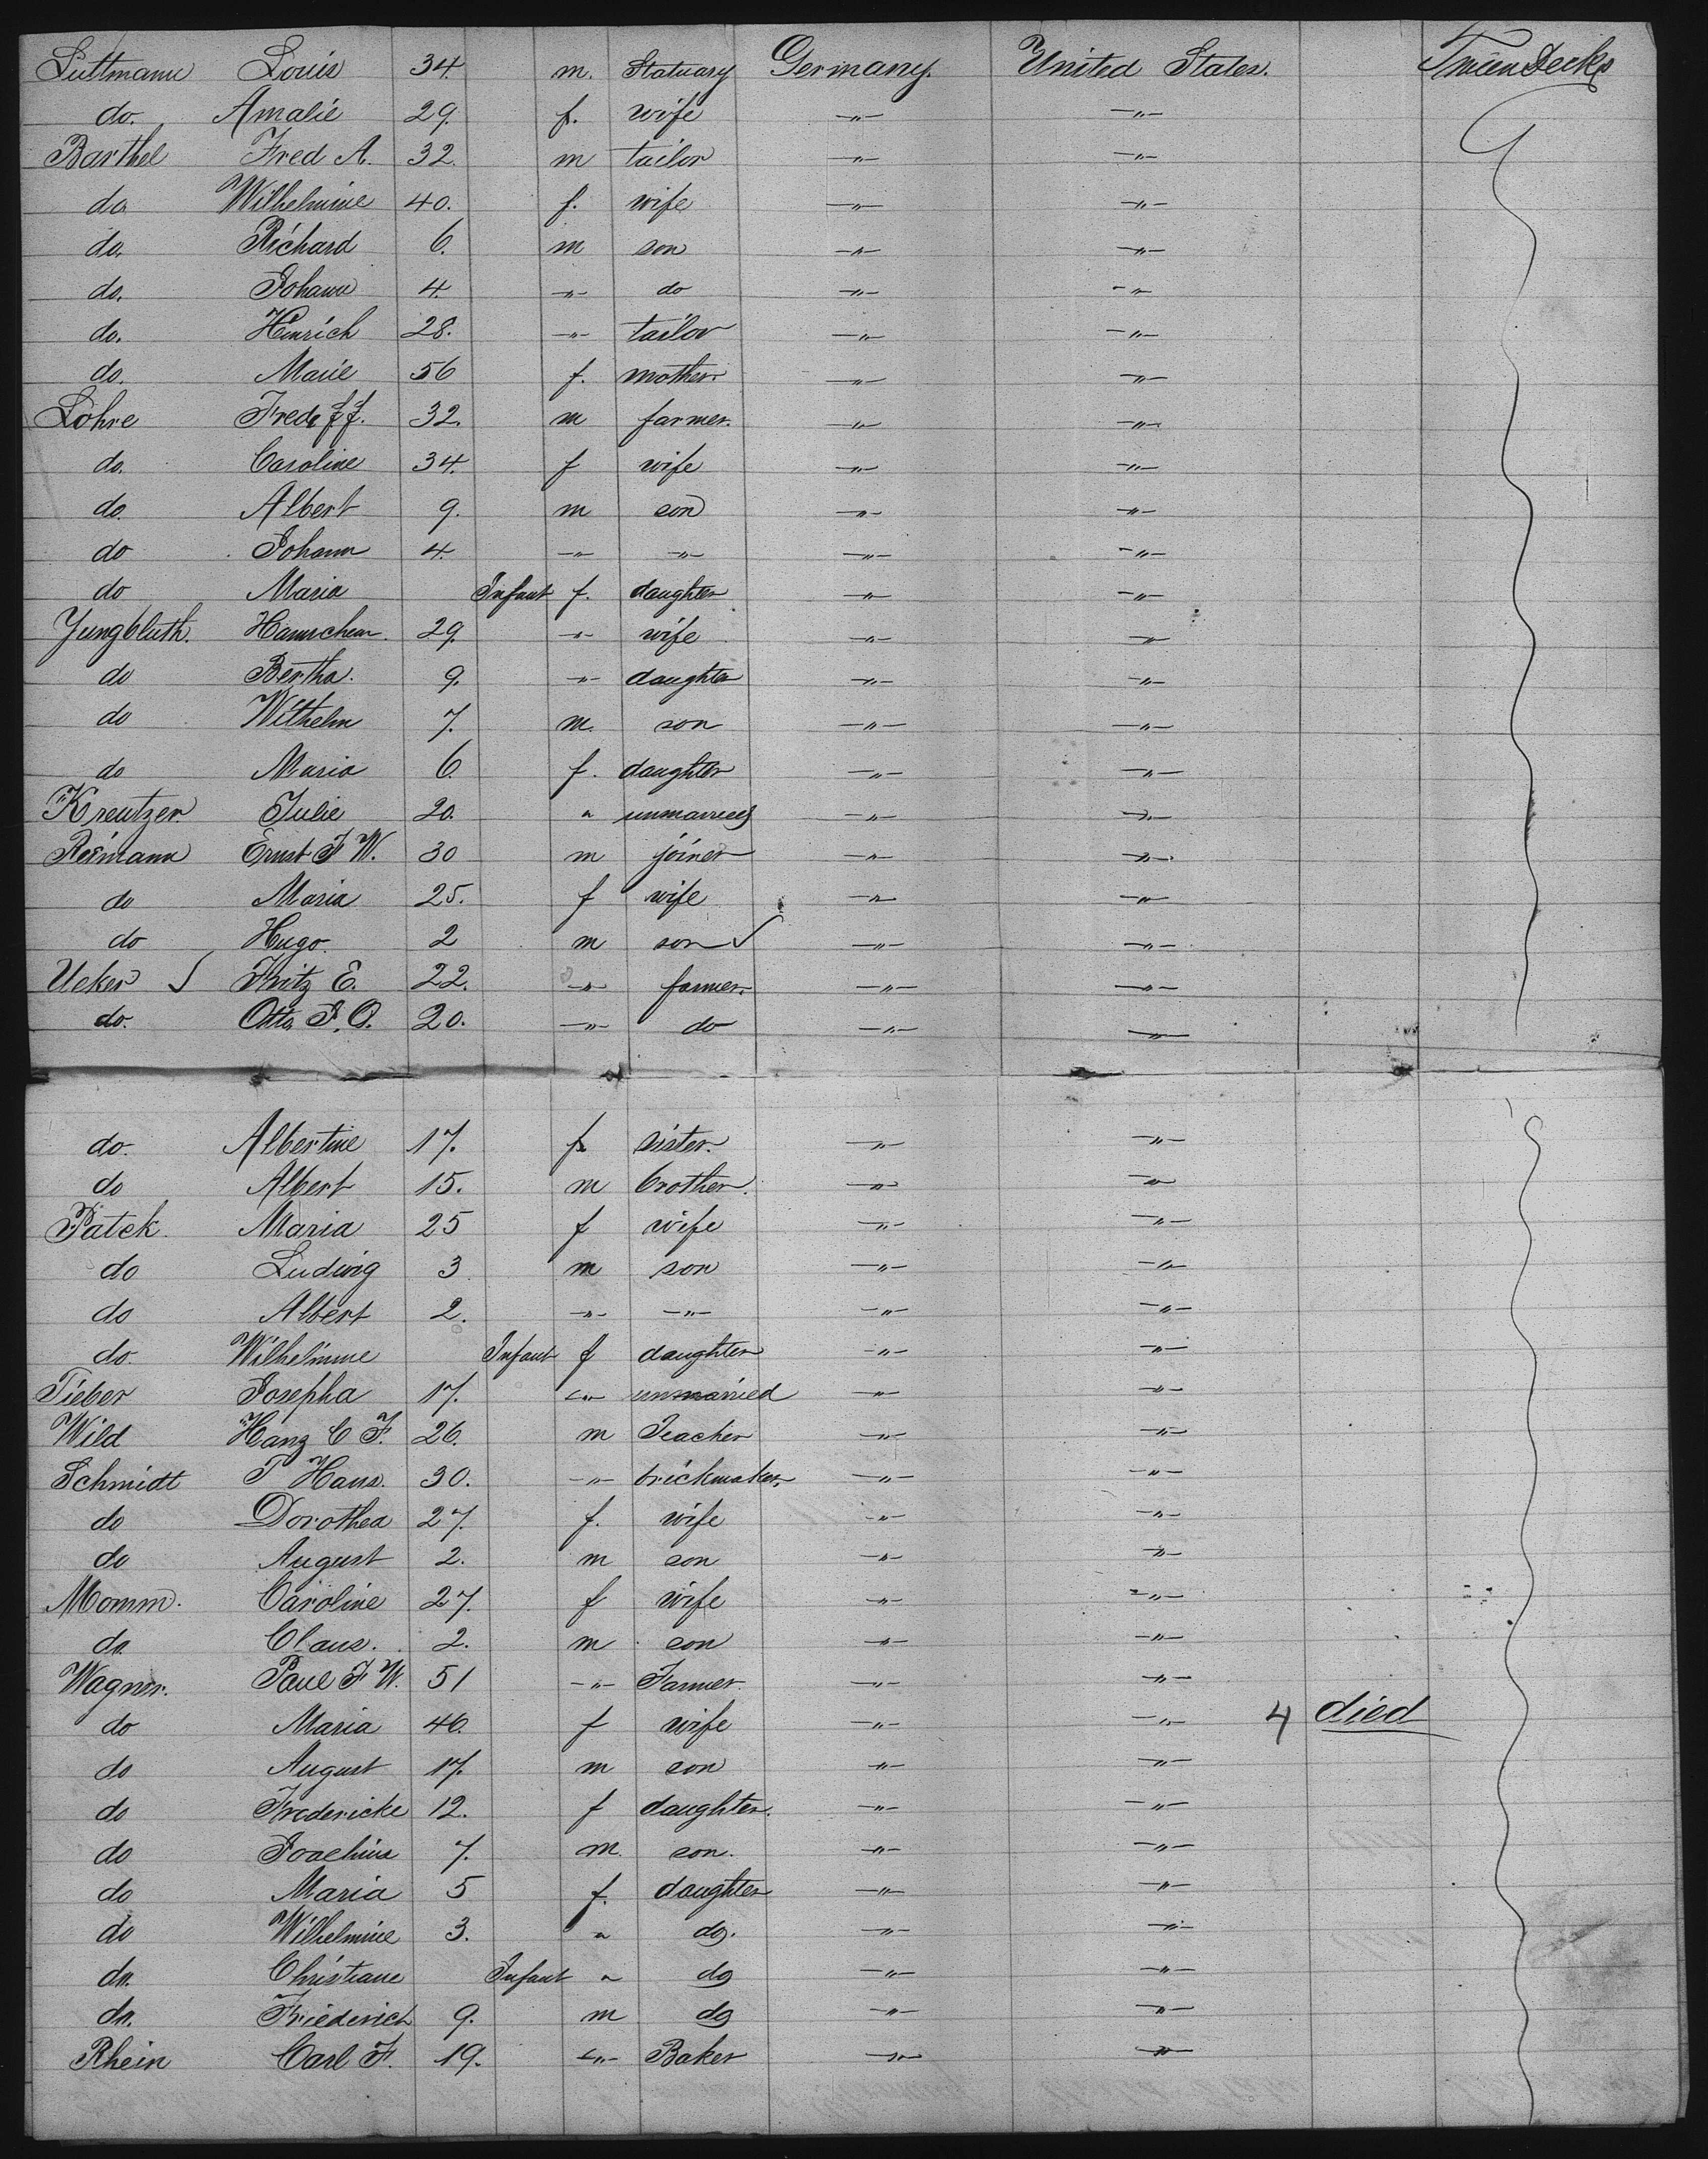 Luttmann Louis 34 m. Statuary Germany. United States. Tween Decks
do. Amalie 29. f. wife -"- -"-
Barthel Fred A. 32. m tailor -"- -"-
do. Wilhelmine 40. f. wife -"- -"-
do. Richard 6. m son -"- -"-
do. Johann 4. -"- do -"- -"-
do. Heinrich 28. -"- tailor -"- -"-
do. Marie 56 f. mother. -"- -"-
Löhre Fred 32. m farmer. -"- -"-
do. Caroline 34. f wife -"- -"-
do. Albert 9. m son -"- -"-
do Johann 4. -"- -"- -"- -"-
do Maria Infant f. daughter -"- -"-
Jungbluth. Hannchen 29. -"- wife -"- -"-
do Bertha. 9. -"- daughter -"- -"-
do Wilhelm 7. m. son -"- -"-
do Maria 6. f. daughter -"- -"-
Kreutzer Julie 20. " unmarried -"- -"-
Reimann Ernst F W. 30 m joiner -"- -"-
do Maria 25. f wife -"- -"-
do Hugo 2 m son ✓ -"- -"-
Ueker ✓ Fritz E. 22. -"- farmer. -"- -"-
do. Otto 20. -"- do -"- -"-
do. Albertine 17. f. sister. -"- -"-
do Albert 15. m brother. -"- -"-
Patek Maria 25 f wife -"- -"-
do Ludwig 3 m son -"- -"-
do Albert 2. -"- -"- -"- -"-
do. Wilhelmine Infant f daughter -"- -"-
Tieber Josepha 17. -"- unmarried -"- -"-
Wild Hanz C F. 26. m Teacher -"- -"-
Schmidt Hans. 30. -"- brickmaker. -"- -"-
do Dorothea 27. f. wife -"- -"-
do August 2. m son -"- -"-
Momm. Caroline 27. f wife -"- -"-
do. Claus. 2. m son -"- -"-
Wagner. Paul F W. 51 -"- Farmer. -"- -"-
do Maria 46. f wife -"- -"- 4 died
do August 17. m son -"- -"-
do Fredericke 12. f daughter. -"- -"-
do Joachim 7. m. son. -"- -"-
do Maria 5 f. daughter -"- -"-
do Wilhelmine 3. " do. -"- -"-
do. Christiane Infant " do -"- -"-
do. Friederich 9. m do -"- -"-
Rhein Carl F. 19. -"- Baker -"- -"-